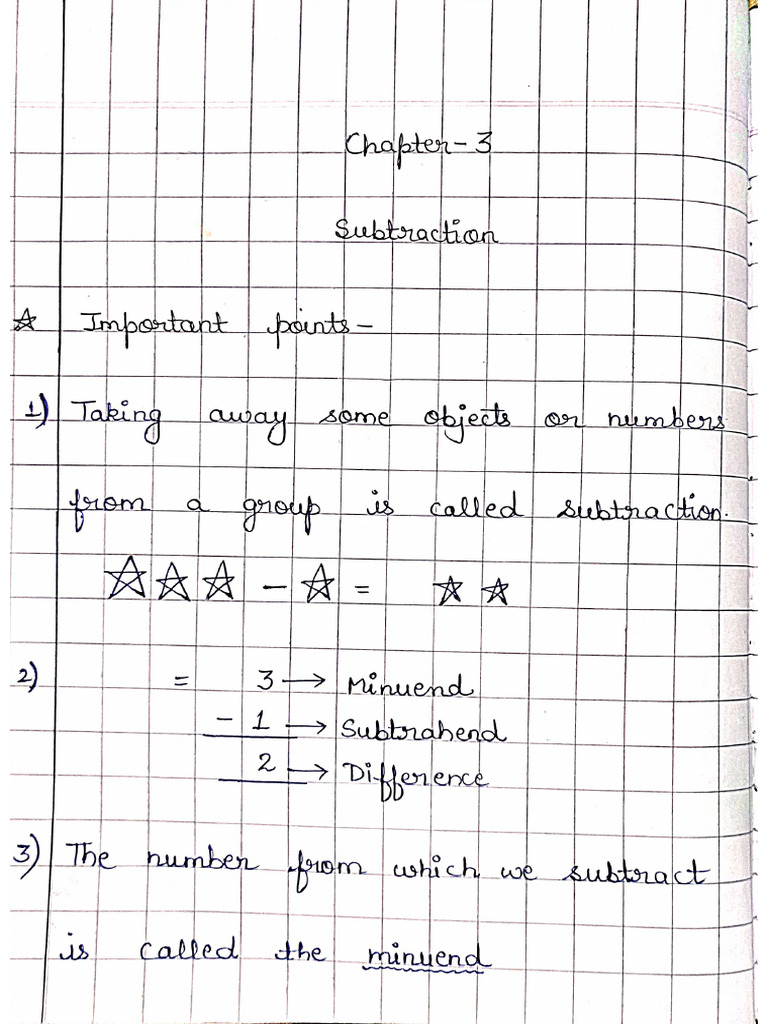 Chapter-3
Subtraction
☆ Important points-
1) Taking away some objects or numbers
from a group is called subtraction.
☆☆☆ - ☆ = ☆ ☆
2) = 3 → Minuend
- 1 → Subtrahend
2 → Difference
3) The number from which we subtract
is called the minuend